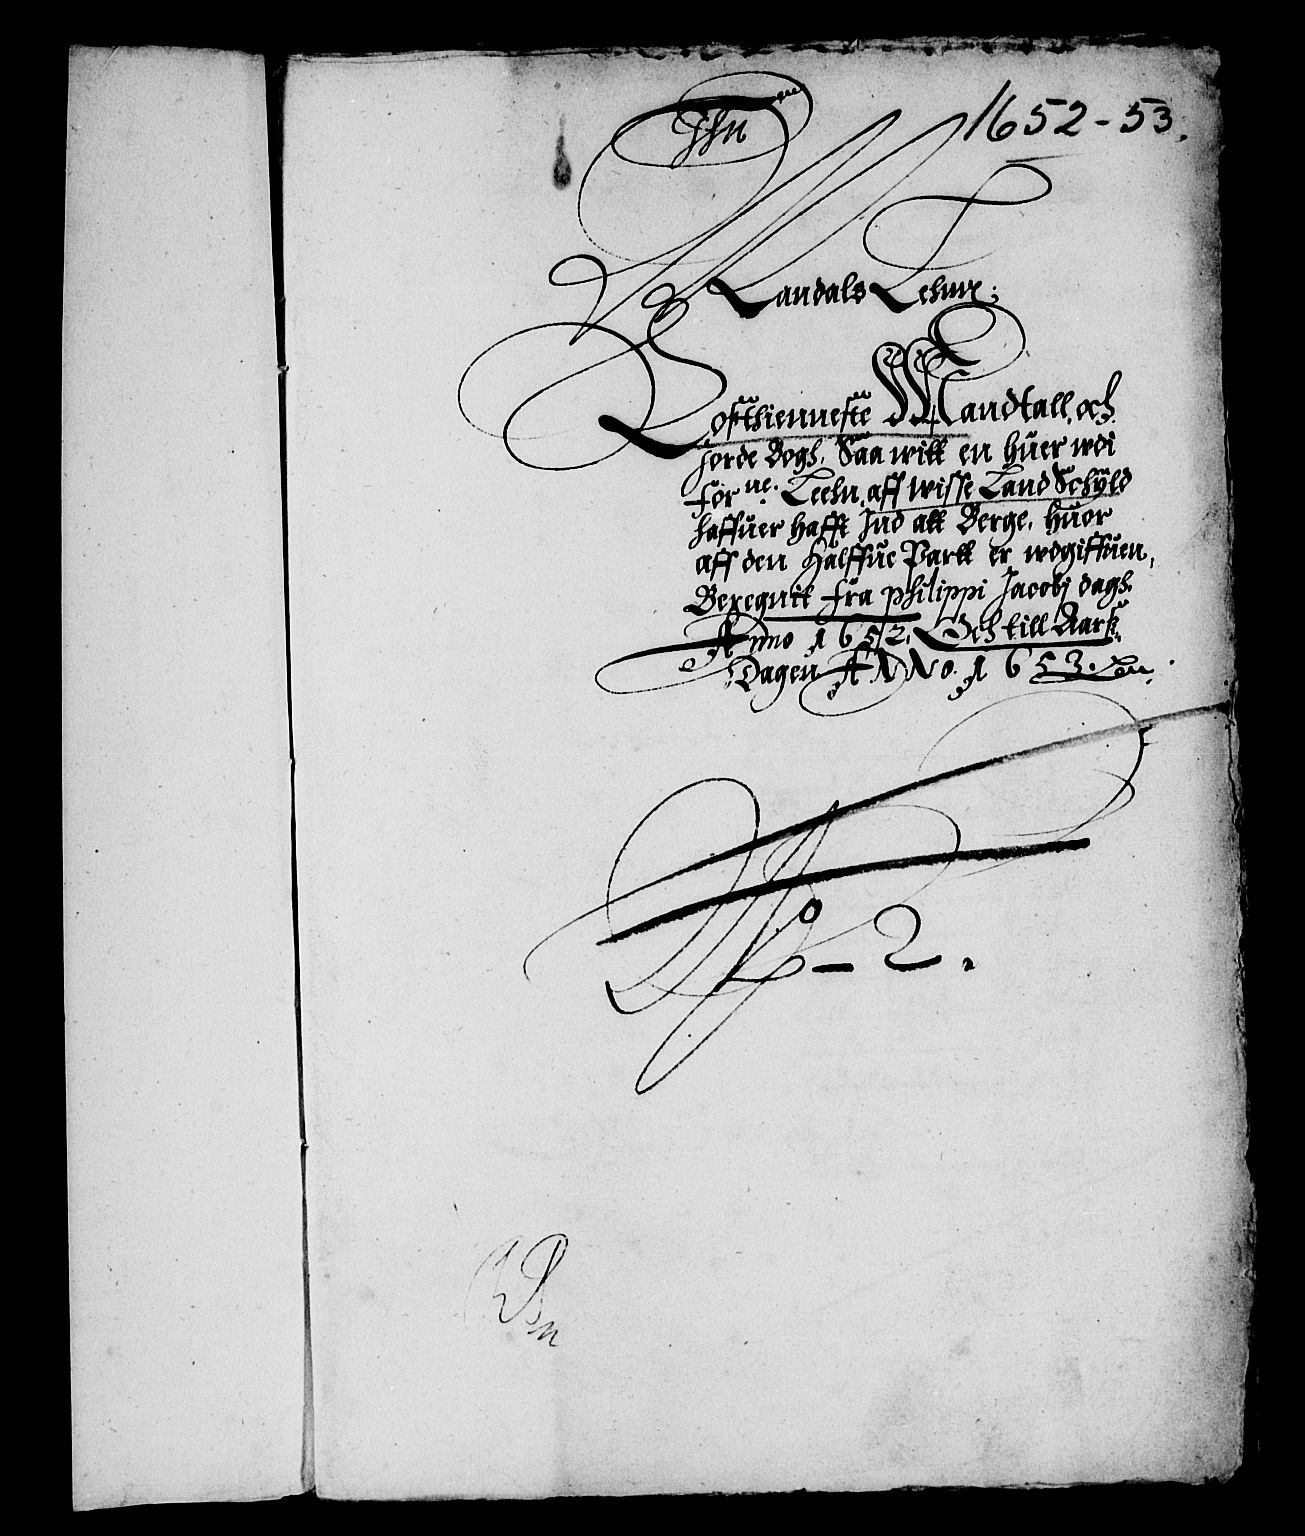 1652-53.
Mandals Lehnn;
Rosthienneste Mandtall, och
Jorde Bogh. Saa witt en huer wdi
forne. Leehn, aff wisse Land Schÿld
haffuer hafft Ind att Berge, huor
aff den Halffue Partt er wdgiffuen,
Beregnitt fra Philippi Jacobj dagh.
Anno 1652. Och till Aars
Dagen ANNO. 1653.
No-2.